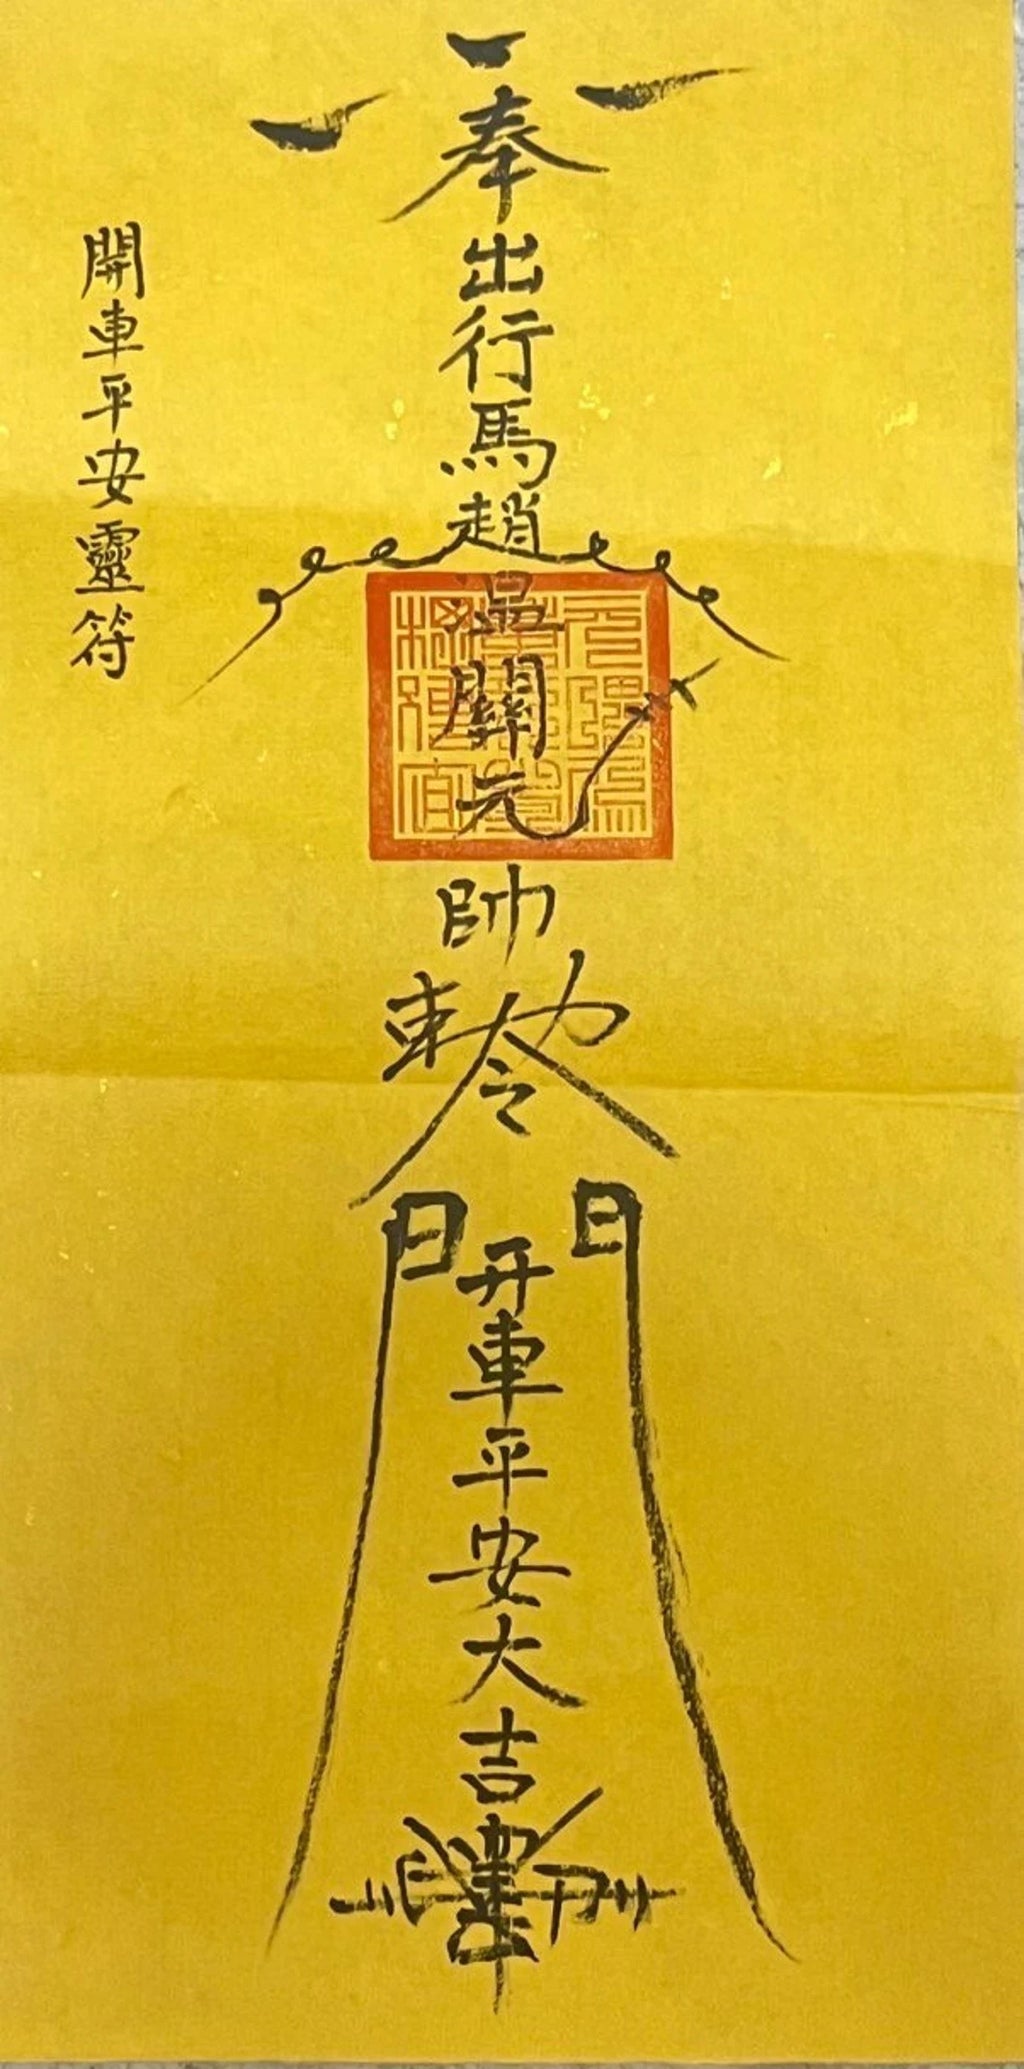 奉出行馬趙溫關元帥
敕令
開車平安大吉
開車平安靈符